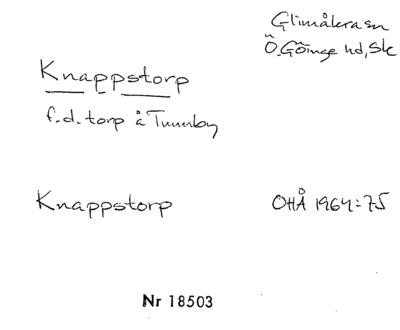 Glimåkra sn
Ö. Göinge hd, Sk
Knappstorp
f.d. torp å Tunnby
Knappstorp
OHÅ 1964:75
Nr 18503